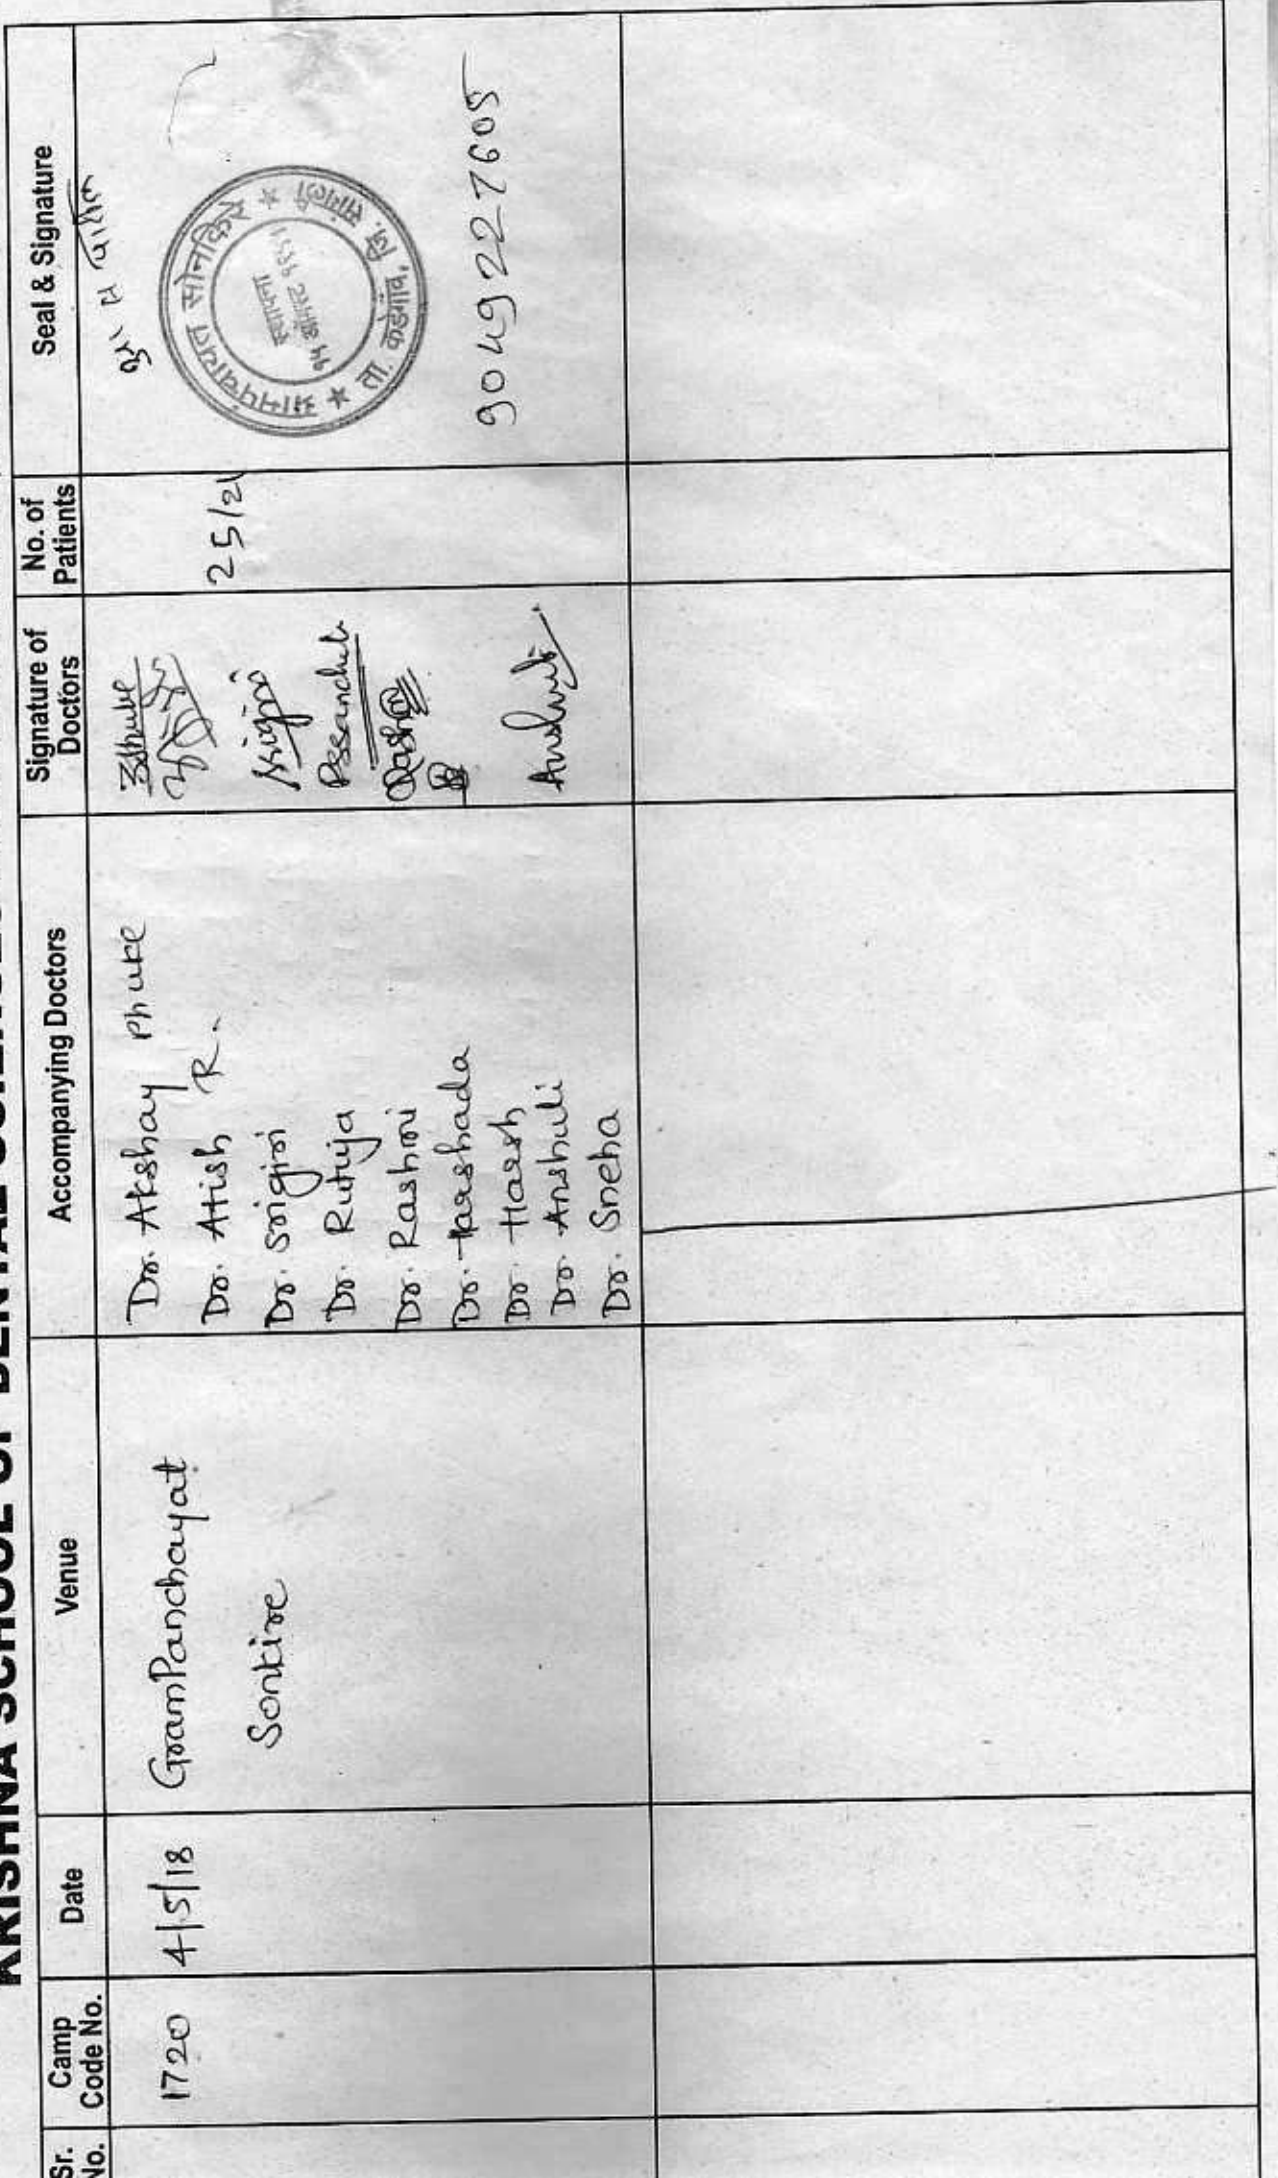 KRISHNA SCHOOL OF DENTAL SCIENCES
Sr. No.
Camp Code No.
Date
Venue
Accompanying Doctors
Signature of Doctors
No. of Patients
Seal & Signature
1720
4/5/18
GramPanchayat
Sonkire
Dr. Akshay Phuke
Dr. Atish R.
Dr. Srigiri
Dr. Rutuja
Dr. Rashmi
Dr. Harshada
Dr. Harsh
Dr. Anshuli
Dr. Sneha
Srigiri
Anshuli
25/21
ग्रामपंचायत सोनकिरे
ता. कडेगांव, जि. सांगली
स्थापना
9049227605